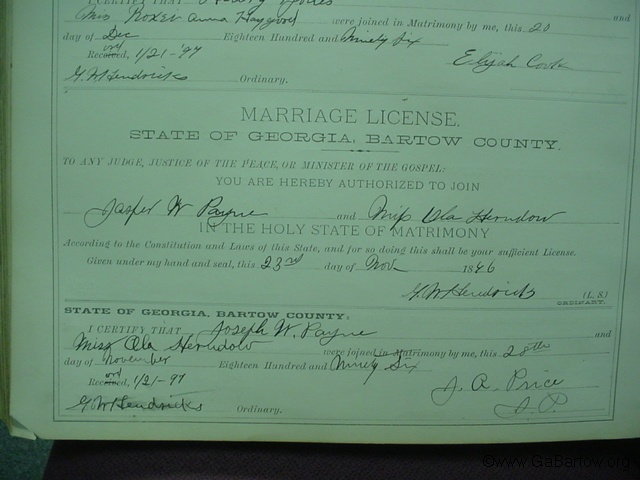 I CERTIFY THAT
Miss Roxer Anna Haygood were joined in Matrimony by me, this 20
day of Dec Eighteen Hundred and Ninety Six
Recorded, 1/21-97 Elijah Cook
G. W Hendricks Ordinary.
MARRIAGE LICENSE.
STATE OF GEORGIA, BARTOW COUNTY.
TO ANY JUDGE, JUSTICE OF THE PEACE, OR MINISTER OF THE GOSPEL:
YOU ARE HEREBY AUTHORIZED TO JOIN
Jasper W Payne and Miss Ola Herndow
IN THE HOLY STATE OF MATRIMONY
According to the Constitution and Laws of this State, and for so doing this shall be your sufficient License.
Given under my hand and seal, this 23rd day of Nov 1896
G. W Hendricks (L. S.)
ORDINARY.
STATE OF GEORGIA, BARTOW COUNTY:
I CERTIFY THAT Joseph W. Payne and
Miss Ola Herndow were joined in Matrimony by me, this 28th
day of November Eighteen Hundred and Ninety Six
Recorded, 1/21-97 J. A. Price
G W Hendricks Ordinary. J. P.
©www.GaBartow.org